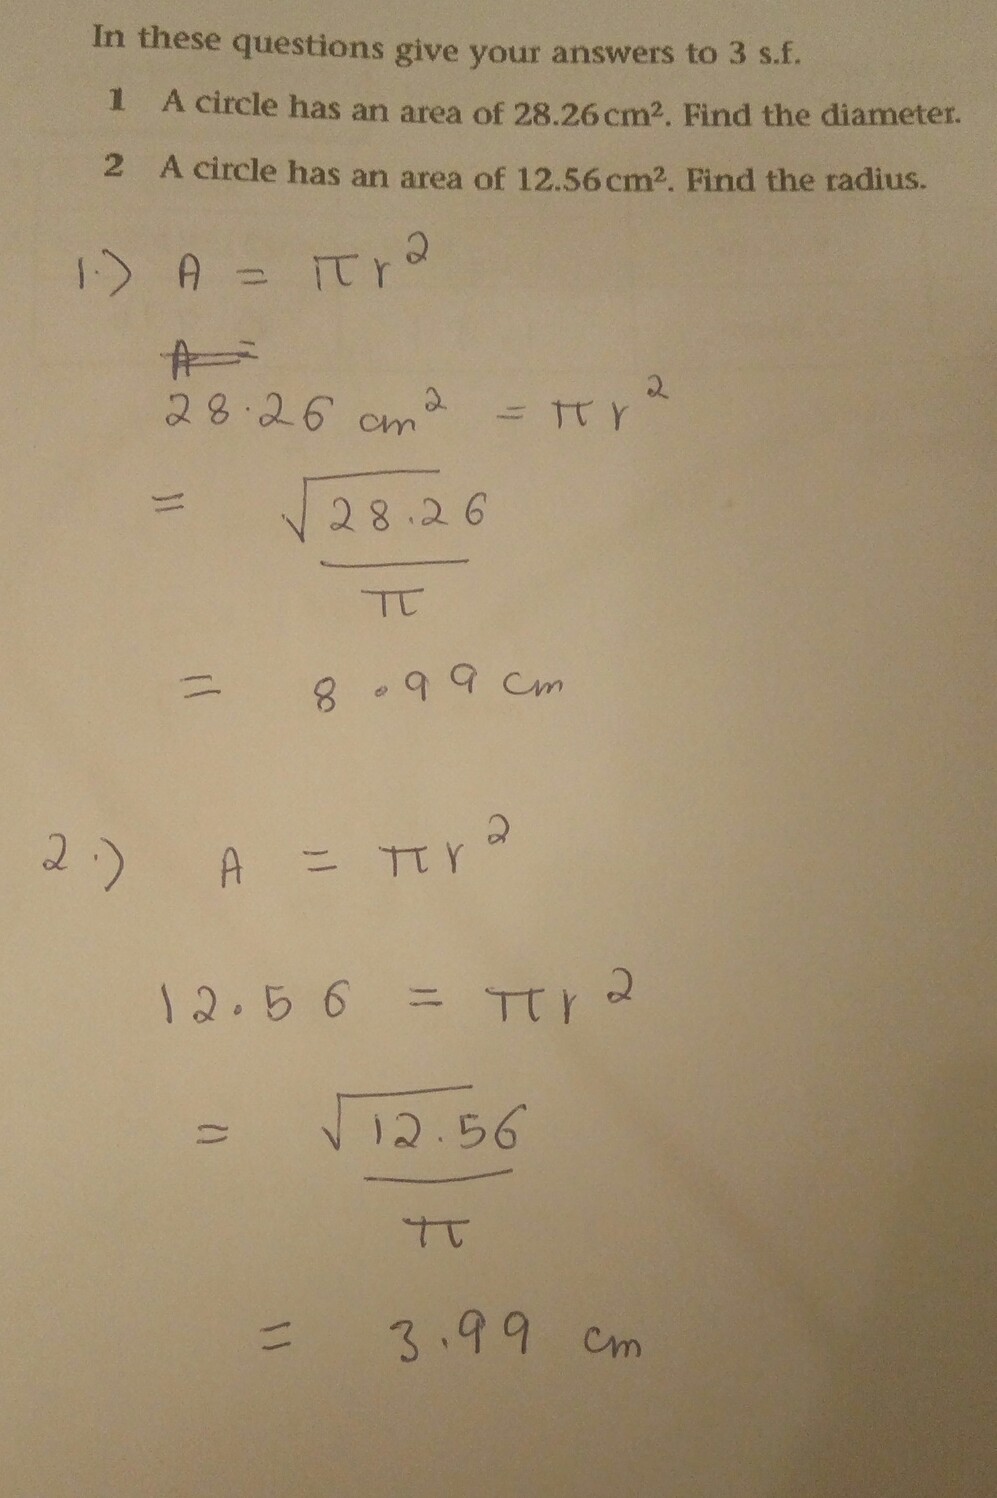 In these questions give your answers to 3 s.f.
1 A circle has an area of 28.26 cm². Find the diameter.
2 A circle has an area of 12.56 cm². Find the radius.
1.) A = πr²
A =
28.26 cm² = πr²
= √28.26
π
= 8.99 cm
2.) A = πr²
12.56 = πr²
= √12.56
π
= 3.99 cm